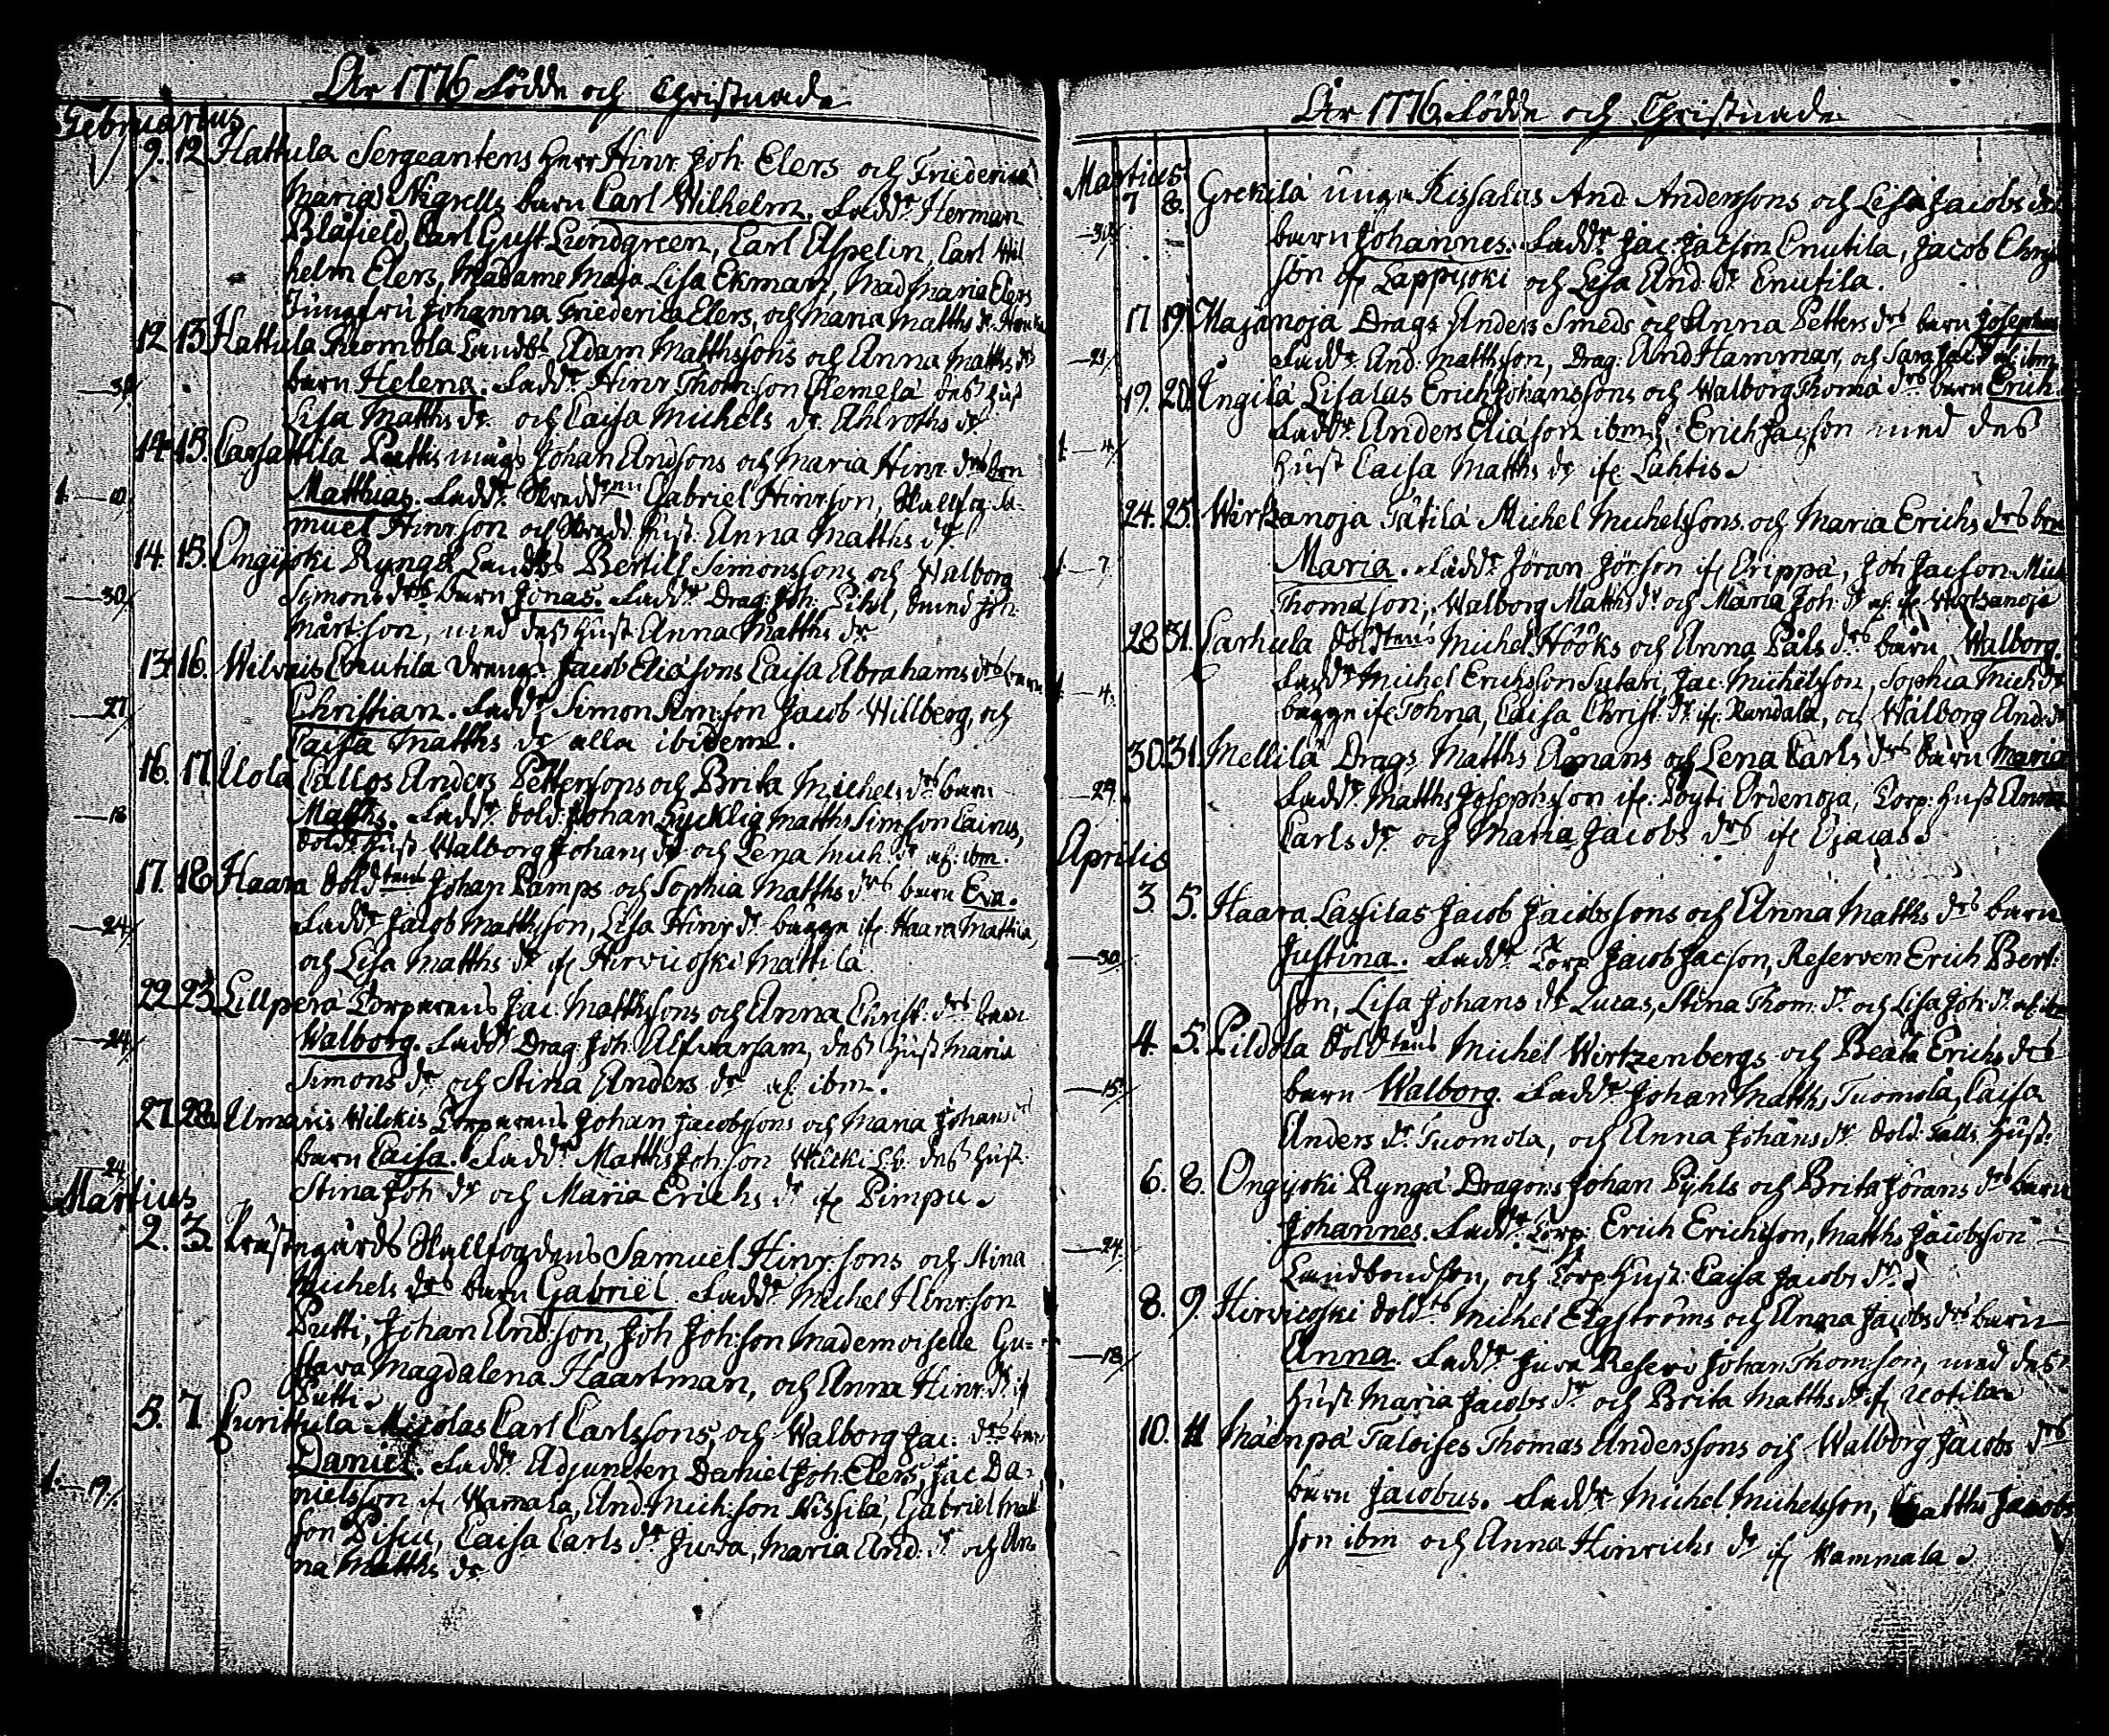 År 1776 Födde och Christnade
Februarius
9. 12 Hattula Sergeantens Herr Hinr. Joh. Elers och Friederica
Maria Nigrells barn Carl Wilhelm. Fadd:r Herman
Blåfield, Carl Gust. Lundgreen, Carl Aspelin, Carl Wil
helm Elers, Madame Maja Lisa Ekman, Mad. Maria Elers
Jungfru Johanna Friederica Elers, och Maria Matths dr
12 13 Hattula Tuomola Landbs Adam Matthssons och Anna Matths drs
—31/ barn Helena. Fadd:r Hinr Thom:son Clemelä dess Hust
Lisa Matths dr och Caisa Michels dr Ahlroths dr
14. 15. Carsattila Puttis mågs Johan Andsons och Maria Hinr. drs brn
1.—10/ Matthias. Fadd:r Gabriel Hinrson, Stallfg: Sa-
muel Hinrson och Hust. Anna Matths dr
14. 15. Ongijoki Ryngä Landbs Bertill Simonssons och Walborg
—30/ Simons drs barn Jonas. Fadd:r Drag: Joh: Pihl, Joh:
Mårt:son, med dess hust Anna Matths dr
13. 16. Cnutila drengs Jacob Eliasons Caisa Abrahams drs barn
—27/ Christian. Fadd:r Simon Sim:son Jacob Willberg, och
Caisa Matths dr alla ibidem.
16. 17 Uola Callos Anders Pettersons och Brita Michels drs barn
—18/ Matths. Fadd:r Sold: Johan Lycklig Matths Sim:son Cairus,
Sold: Hust Walborg Johans dr och Lena Mich: dr af: ibm.
17. 18 Haara Soldtens Johan Pamps och Sophia Matths drs barn Eva.
—24/ Fadd:r Jacob Matthsson, Lisa Hinr dr bägge if: Haara Mattila,
och Lisa Matths dr if: Hirvicoski Mattila
22. 23 Lillperä Torparens Jac: Matthssons och Anna Christ: drs barn
—24/ Walborg. Fadd:r Drag: Joh: Alfvarsam, dess Hust Maria
Simons dr och Stina Anders dr af: ibm.
27. 28. Wilckis Torparens Johan Jacobssons och Maria Johans drs
—24/ barn Caisa. Fadd:r Matths Joh:son dess hust
Stina Joh dr och Maria Erichs dr if: Pimpu.
Martius
2. 3. Prästegårds Stallfogdens Samuel Hinr:sons och Stina
Michels drs barn Gabriel. Fadd:r Michel Hinrson
Putti, Johan And:son, Joh Joh:son Mademoiselle Gu=
stava Magdalena Haartman, och Anna Hinr. dr if
Putti.
5. 7. Purittula Micolas Carl Carlssons, och Walborg Jac: drs barn
1.—19/ Daniel. Fadd:r Adjuncten Daniel Joh: Elers, Jac Da-
nielsson if Wamala, And. Mich:son Kissilä, Gabriel Matt
son Pispu, Caisa Carls dr Juva, Maria And: dr och An-
na Matths dr
År 1776 Födde och Christnade
Martius
7 8. Grekilä unga Kissalas And Anderssons och Lisa Jacobs drs
—31/ barn Johannes. Fadd:r Jac: Jacson Cnutila, Jacob Chris
son if Lappijoki och Lisa And: dr Cnutila.
17 19 Majanoja Drags Anders Smeds och Anna Petters drs barn Josephus
—21/ Fadd:r And: Mattsson, Drag: And Hammar, och Sara Jac: dr af: ibm
19. 20. Ingilä Lisalas Erich Johanssons och Walborg Thoma drs barn Erich.
1.—4/ Fadd:r Anders Eliason ibm, Erich Jacson med dess
Hust Caisa Matths dr if Lahtis.
24. 25. Wirtzanoja Tätilä Michel Michelssons och Maria Erichs drs brn
1.—7. Maria. Fadd:r Jöran Jörson if Krippa, Joh Jacson Mich
Thomason, Walborg Matths dr och Maria Joh: dr af: if Wirtzanoja
28 31. Sarhula Soldtens Michel Hööks och Anna Påls drs barn Walborg.
1.—4. Fadd:r Michel Erichsson Sutari, Jac: Michelsson, Sophia Mich dr
bägge if Tohna, Caisa Christ: dr if: Randala, och Walborg And: dr
30. 31 Mellilä Drags Matths Åmans och Lena Carls drs barn Maria
—29. Fadd:r Matths Josephsson if: Poyti Ordenoja, Torp: Hust Anna
Carls dr och Maria Jacobs drs if Ojacas.
Aprilis
3. 5. Haara Lassilas Jacob Jacobssons och Anna Matths drs barn
—30/ Justina. Fadd:r Torp Jacob Jacson, Reserven Erich Bert:
son, Lisa Johans dr Lucas, Stina Thom: dr och Lisa Joh dr af: ibm
4. 5. Pildola Soldtens Michel Wirtzenbergs och Beata Erichs drs
—15/ barn Walborg. Fadd:r Johan Matths Tuomola, Caisa
Anders dr Tuomola, och Anna Johans dr Sold: Talls Hust.
6. 8. Ongijoki Ryngä Dragons Johan Pyhls och Brita Jörans drs barn
—24/ Johannes. Fadd:r Torp: Erich Erichsson, Matths Jacobson
Landbondson, och Torp Hust: Caisa Jacobs dr.
8. 9. Hirvicoski Soldts Michel Elgströms och Anna Jacobs drs barn
—18/ Anna. Fadd:r Juva Reserv Johan Thomson, med dess
Hust Maria Jacobs dr och Brita Matths dr if Uotila
10. 11 Mäenpä Taloises Thomas Anderssons och Walborg Jacobs drs
barn Jacobus. Fadd:r Michel Michelsson, Matths Jacobs
son ibm och Anna Hinrichs dr if Wammala.